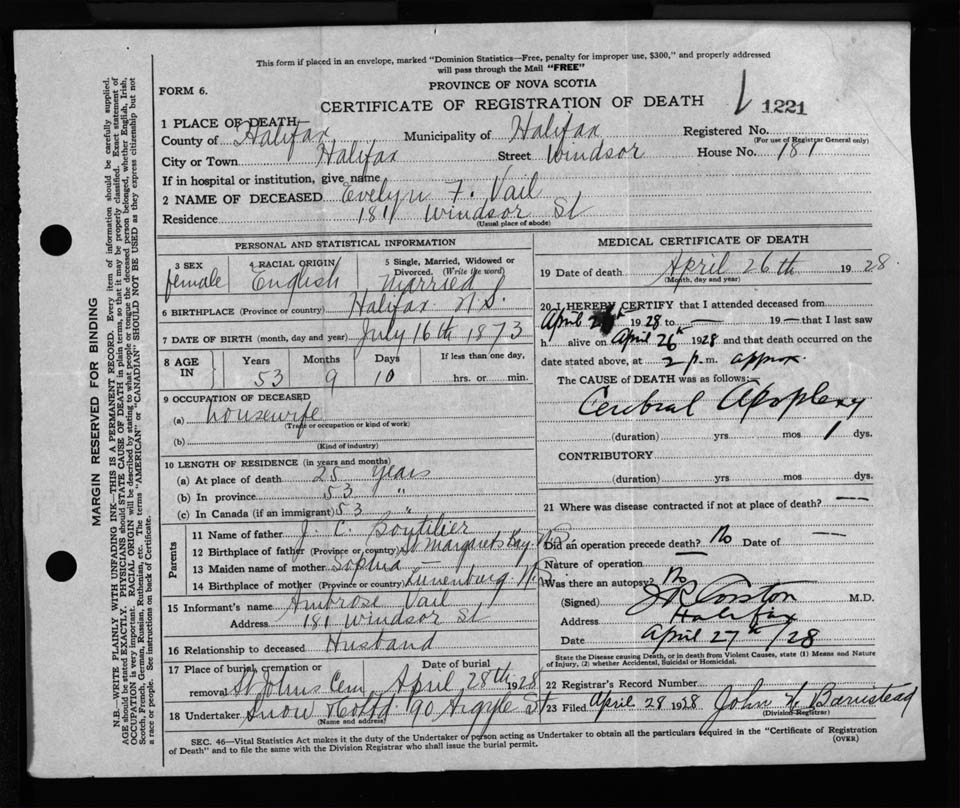 This form if placed in an envelope, marked "Dominion Statistics—Free, penalty for improper use, $300," and properly addressed
will pass through the Mail "FREE"
FORM 6.
PROVINCE OF NOVA SCOTIA
CERTIFICATE OF REGISTRATION OF DEATH
1221
1 PLACE OF DEATH
County of Halifax Municipality of Halifax Registered No.
(For use of Registrar General only)
City or Town Halifax Street Windsor House No. 181
If in hospital or institution, give name
2 NAME OF DECEASED Evelyn F. Vail
Residence 181 Windsor St
(Usual place of abode)
PERSONAL AND STATISTICAL INFORMATION
3 SEX 4 RACIAL ORIGIN 5 Single, Married, Widowed or Divorced. (Write the word)
female English Married
6 BIRTHPLACE (Province or country) Halifax N.S.
7 DATE OF BIRTH (month, day and year) July 16th 1873
8 AGE IN Years Months Days If less than one day,
53 9 10 hrs. or min.
9 OCCUPATION OF DECEASED
(a) housewife
(Trade or occupation or kind of work)
(b)
(Kind of industry)
10 LENGTH OF RESIDENCE (in years and months)
(a) At place of death 25 years
(b) In province 53 "
(c) In Canada (if an immigrant) 53 "
Parents
11 Name of father J. C. Boutilier
12 Birthplace of father (Province or country) St Margarets Bay N.S.
13 Maiden name of mother Sophia
14 Birthplace of mother (Province or country) Lunenburg N.S.
15 Informant's name Ambrose Vail
Address 181 Windsor St
16 Relationship to deceased Husband
17 Place of burial, cremation or removal Date of burial
St Johns Cem April 28th 1928
18 Undertaker Snow & Co Ltd 90 Argyle St
(Name and address)
MEDICAL CERTIFICATE OF DEATH
19 Date of death April 26th 1928.
(Month, day and year)
20 I HEREBY CERTIFY that I attended deceased from
April 26th 1928 to — 19— that I last saw
h alive on April 26th 1928 and that death occurred on the
date stated above, at 2 p.m. approx.
The CAUSE OF DEATH was as follows:
Cerebral Apoplexy
(duration) yrs mos 1 dys.
CONTRIBUTORY
(duration) yrs mos dys.
21 Where was disease contracted if not at place of death? —
Did an operation precede death? No Date of —
Nature of operation
Was there an autopsy? No
(Signed) J R Corston M.D.
Address Halifax
Date April 27th/28
State the Disease causing Death, or in death from Violent Causes, state (1) Means and Nature
of Injury, (2) whether Accidental, Suicidal or Homicidal.
22 Registrar's Record Number
23 Filed April 28 1928 John H Barnstead
(Division Registrar)
SEC. 46—Vital Statistics Act makes it the duty of the Undertaker or person acting as Undertaker to obtain all the particulars required in the "Certificate of Registration
of Death" and to file the same with the Division Registrar who shall issue the burial permit.
(OVER)
MARGIN RESERVED FOR BINDING
N.B.—WRITE PLAINLY WITH UNFADING INK—THIS IS A PERMANENT RECORD. Every item of information should be carefully supplied.
AGE should be stated EXACTLY. PHYSICIANS should STATE CAUSE OF DEATH in plain terms, so that it may be properly classified. Exact statement of
OCCUPATION is very important. RACIAL ORIGIN will be described by stating to what people or tongue the deceased person belonged, whether English, Irish,
Scotch, French, German, Russian, Ruthenian, etc. The terms "AMERICAN" or "CANADIAN" SHOULD NOT BE USED as they express citizenship but not
a race or people. See instructions on back of Certificate.